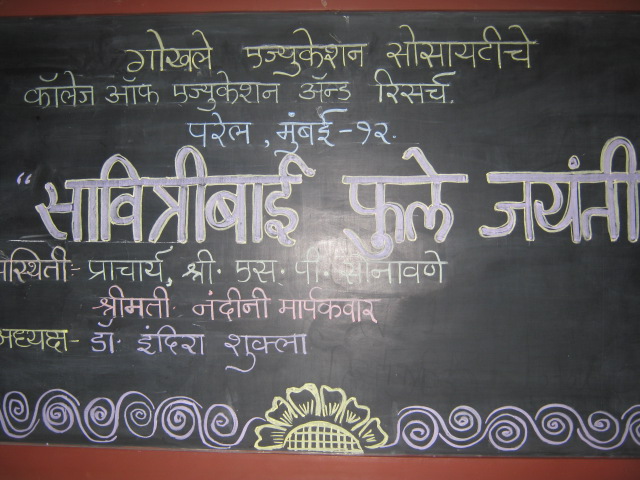 गोखले एज्युकेशन सोसायटीचे
कॉलेज ऑफ एज्युकेशन ॲन्ड रिसर्च.
परेल, मुंबई-१२.
“सावित्रीबाई फुले जयंती
पस्थिती:- प्राचार्य, श्री. एस. पी. सोनावणे
श्रीमती नंदीनी मार्पकवार
अध्यक्ष- डॉ. इंदिरा शुक्ला